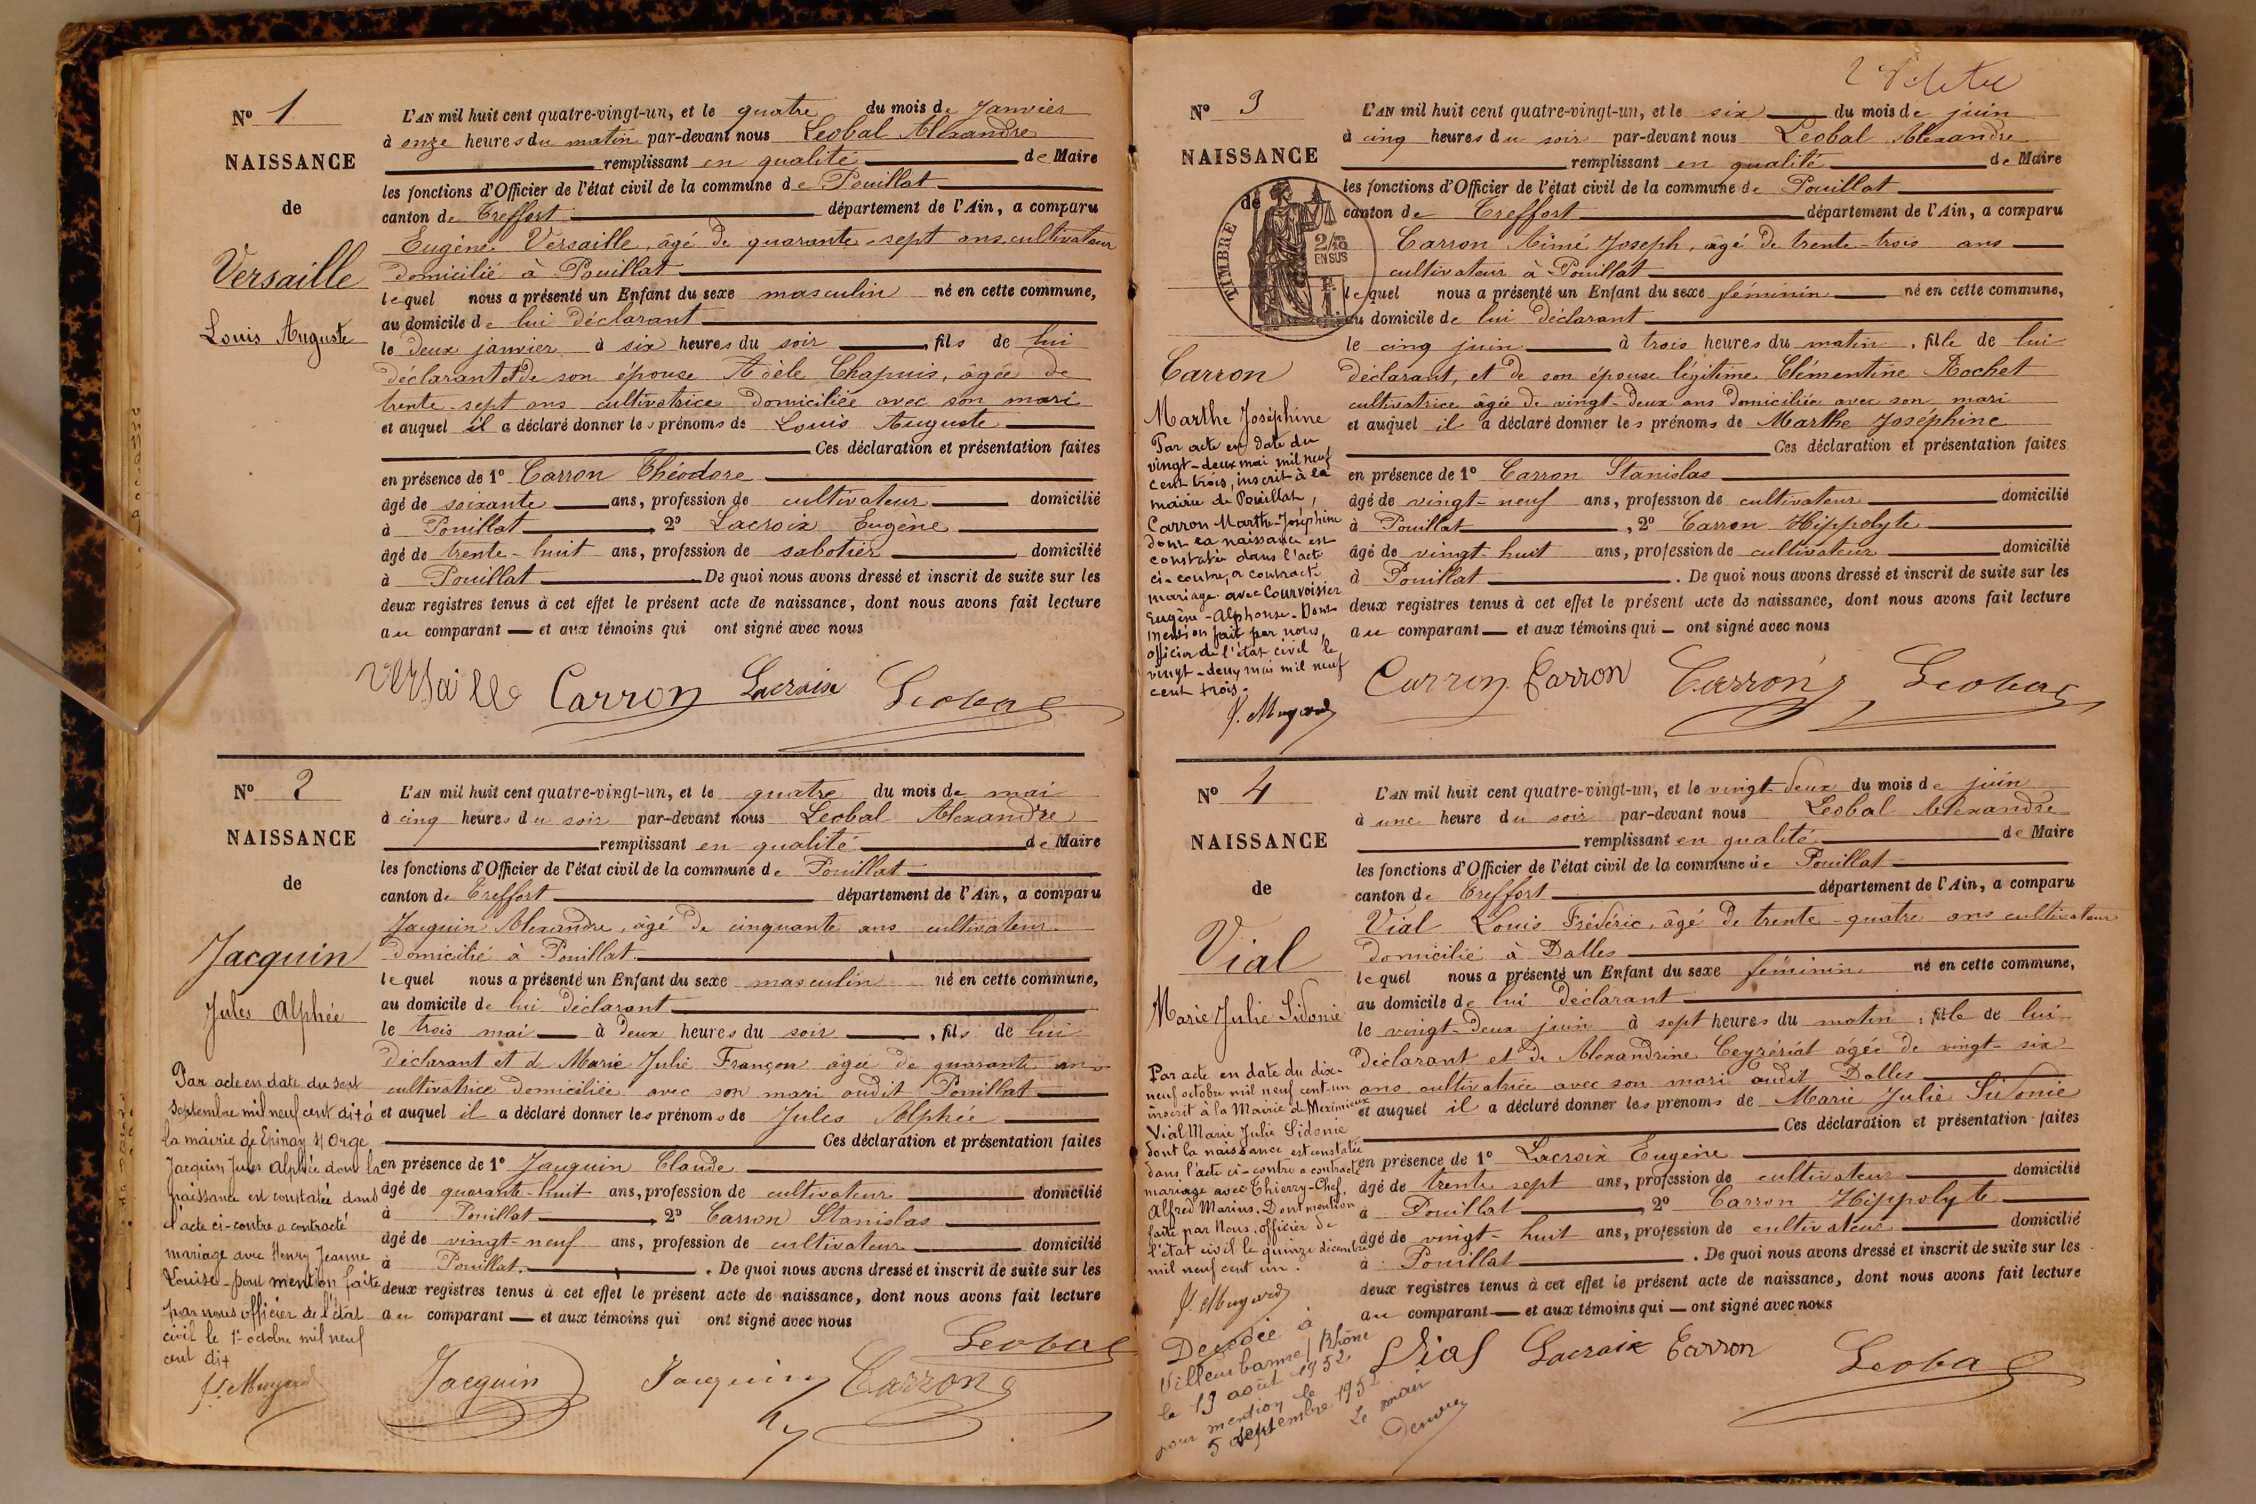 N° 1
NAISSANCE
de
Versaille
Louis Auguste
L'AN mil huit cent quatre-vingt-un, et le quatre du mois de Janvier
à onze heures du matin par-devant nous Leobal Alexandre
remplissant en qualité de Maire
les fonctions d'Officier de l'état civil de la commune de Pouillat
canton de Treffort département de l'Ain, a comparu
Eugène Versaille, âgé de quarante-sept ans cultivateur
domicilié à Pouillat
lequel nous a présenté un Enfant du sexe masculin né en cette commune,
au domicile de lui déclarant
le deux janvier à six heures du soir, fils de lui
déclarant et de son épouse Adèle Chapuis, âgée de
trente-sept ans cultivatrice domiciliée avec son mari
et auquel il a déclaré donner les prénoms de Louis Auguste
Ces déclaration et présentation faites
en présence de 1° Carron Théodore
âgé de soixante ans, profession de cultivateur domicilié
à Pouillat, 2° Lacroix Eugène
âgé de trente-huit ans, profession de sabotier domicilié
à Pouillat De quoi nous avons dressé et inscrit de suite sur les
deux registres tenus à cet effet le présent acte de naissance, dont nous avons fait lecture
au comparant et aux témoins qui ont signé avec nous
Versaille Carron Lacroix Leobal
N° 2
NAISSANCE
de
Jacquin
Jules Alphée
Par acte en date du sept
septembre mil neuf cent dix à
la mairie de Epinay s/ Orge
Jacquin Jules Alphée dont la
naissance est constatée dans
l'acte ci-contre a contracté
mariage avec Henry Jeanne
Louise - pour mention faite
par nous officier de l'état
civil le 1er octobre mil neuf
cent dix
L'AN mil huit cent quatre-vingt-un, et le quatre du mois de mai
à cinq heures du soir par-devant nous Leobal Alexandre
remplissant en qualité de Maire
les fonctions d'Officier de l'état civil de la commune de Pouillat
canton de Treffort département de l'Ain, a comparu
Jacquin Alexandre, âgé de cinquante ans cultivateur
domicilié à Pouillat
lequel nous a présenté un Enfant du sexe masculin né en cette commune,
au domicile de lui déclarant
le trois mai à deux heures du soir, fils de lui
déclarant et de Marie Julie Françon âgée de quarante ans
cultivatrice domiciliée avec son mari audit Pouillat
et auquel il a déclaré donner les prénoms de Jules Alphée
Ces déclaration et présentation faites
en présence de 1° Jacquin Claude
âgé de quarante-huit ans, profession de cultivateur domicilié
à Pouillat, 2° Carron Stanislas
âgé de vingt-neuf ans, profession de cultivateur domicilié
à Pouillat. De quoi nous avons dressé et inscrit de suite sur les
deux registres tenus à cet effet le présent acte de naissance, dont nous avons fait lecture
au comparant et aux témoins qui ont signé avec nous
Leobal
Jacquin Jacquin Carron
N° 3
NAISSANCE
de
TIMBRE
2/10
EN SUS
Carron
Marthe Joséphine
Par acte en date du
vingt-deux mai mil neuf
cent trois, inscrit à la
mairie de Pouillat,
Carron Marthe-Joséphine
dont la naissance est
constatée dans l'acte
ci-contre, a contracté
mariage avec Courvoisier
Eugène-Alphonse. Dont
mention fait par nous,
officier de l'état civil le
vingt-deux mai mil neuf
cent trois.
L'AN mil huit cent quatre-vingt-un, et le six du mois de juin
à cinq heures du soir par-devant nous Leobal Alexandre
remplissant en qualité de Maire
les fonctions d'Officier de l'état civil de la commune de Pouillat
canton de Treffort département de l'Ain, a comparu
Carron Aimé Joseph, âgé de trente-trois ans
cultivateur à Pouillat
lequel nous a présenté un Enfant du sexe féminin né en cette commune,
au domicile de lui déclarant
le cinq juin à trois heures du matin, fille de lui
déclarant, et de son épouse légitime Clémentine Rochet
cultivatrice âgée de vingt-deux ans domiciliée avec son mari
et auquel il a déclaré donner les prénoms de Marthe Joséphine
Ces déclaration et présentation faites
en présence de 1° Carron Stanislas
âgé de vingt-neuf ans, profession de cultivateur domicilié
à Pouillat, 2° Carron Hippolyte
âgé de vingt huit ans, profession de cultivateur domicilié
à Pouillat. De quoi nous avons dressé et inscrit de suite sur les
deux registres tenus à cet effet le présent acte de naissance, dont nous avons fait lecture
au comparant et aux témoins qui ont signé avec nous
Carron Carron Carron Leobal
N° 4
NAISSANCE
de
Vial
Marie Julie Sidonie
Par acte en date du dix-
neuf octobre mil neuf cent un
inscrit à la Mairie de Meximieux
Vial Marie Julie Sidonie
dont la naissance est constatée
dans l'acte ci-contre a contracté
mariage avec Thierry-Chef,
Alfred Marius. Dont mention
faite par Nous, officier de
l'état civil le quinze décembre
mil neuf cent un.
Décédée à
Villeurbanne / Rhône
le 19 août 1952
pour mention le
5 septembre 1952
Le maire
L'AN mil huit cent quatre-vingt-un, et le vingt deux du mois de juin
à une heure du soir par-devant nous Leobal Alexandre
remplissant en qualité de Maire
les fonctions d'Officier de l'état civil de la commune de Pouillat
canton de Treffort département de l'Ain, a comparu
Vial Louis Frédéric, âgé de trente-quatre ans cultivateur
domicilié à Dalles
lequel nous a présenté un Enfant du sexe féminin né en cette commune,
au domicile de lui déclarant
le vingt-deux juin à sept heures du matin, fille de lui
déclarant et de Alexandrine Ceyzériat âgée de vingt-six
ans cultivatrice avec son mari audit Dalles
et auquel il a déclaré donner les prénoms de Marie Julie Sidonie
Ces déclaration et présentation faites
en présence de 1° Lacroix Eugène
âgé de trente sept ans, profession de cultivateur domicilié
à Pouillat, 2° Carron Hippolyte
âgé de vingt-huit ans, profession de cultivateur domicilié
à Pouillat. De quoi nous avons dressé et inscrit de suite sur les
deux registres tenus à cet effet le présent acte de naissance, dont nous avons fait lecture
au comparant et aux témoins qui ont signé avec nous
Vial Lacroix Carron Leobal